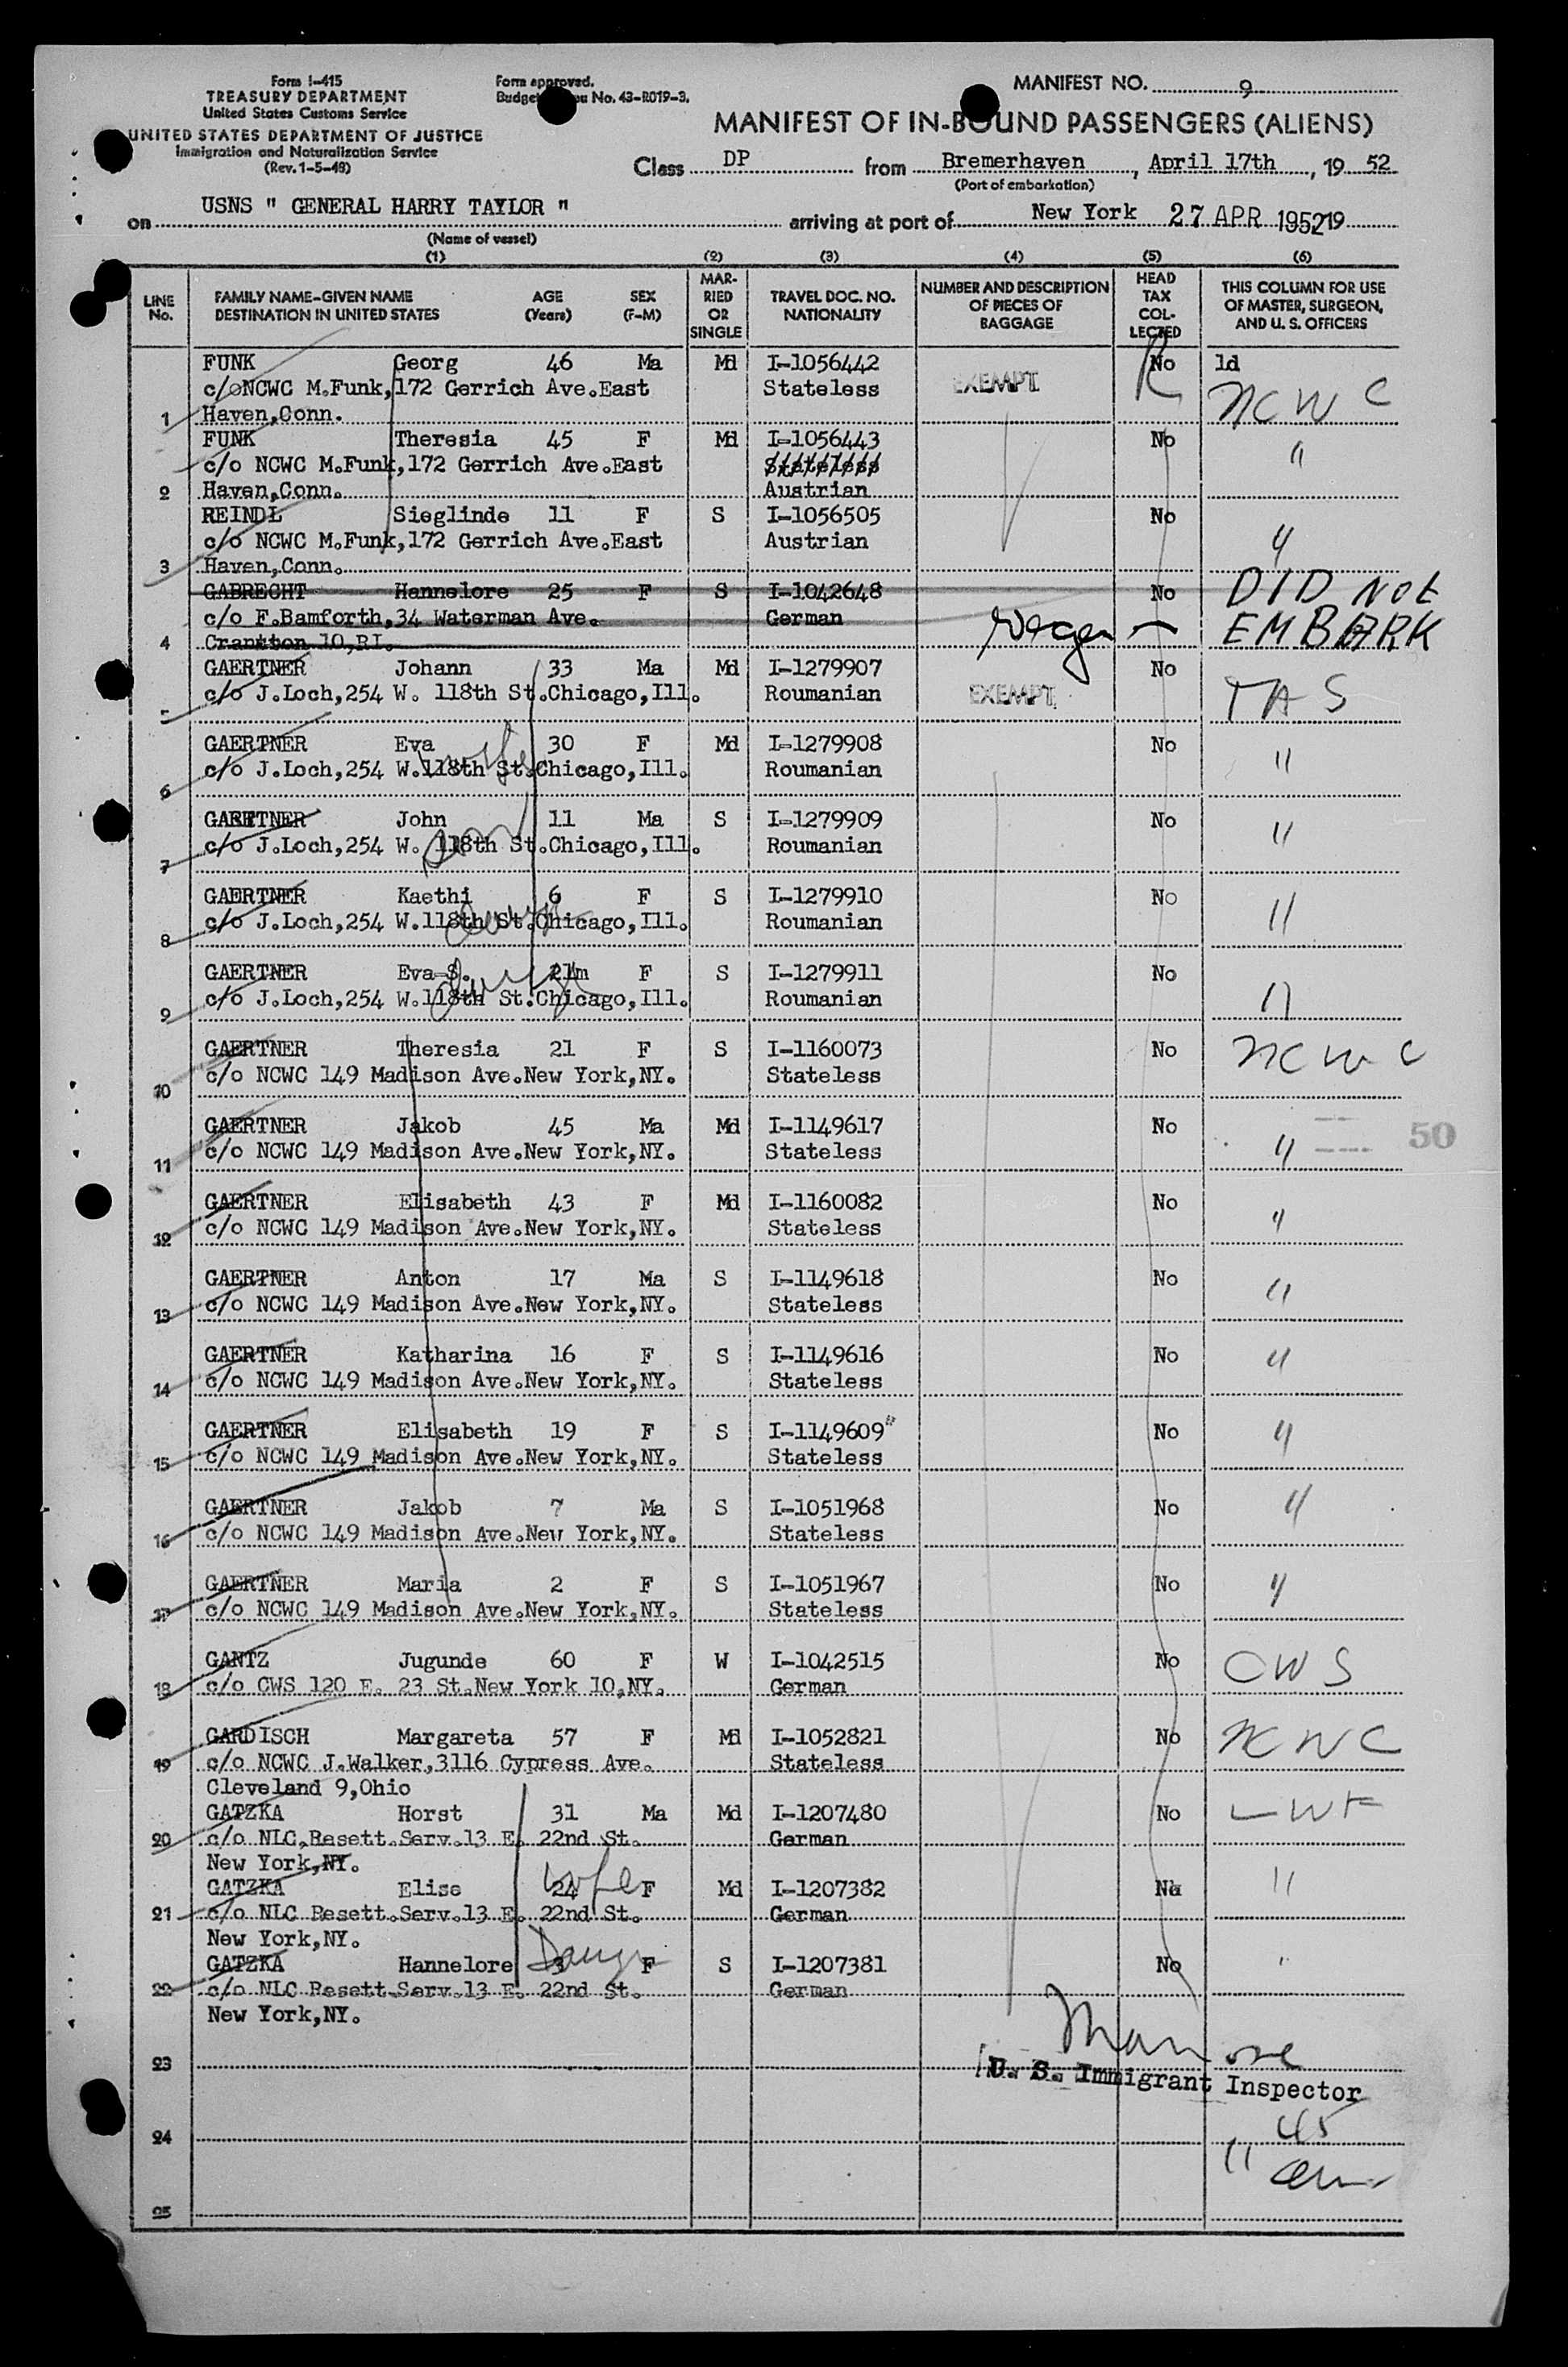 Form I-415
TREASURY DEPARTMENT
United States Customs Service
UNITED STATES DEPARTMENT OF JUSTICE
Immigration and Naturalization Service
(Rev. 1-5-48)
Form approved.
Budget No. 43-R019-3.
MANIFEST NO. 9
MANIFEST OF IN-BOUND PASSENGERS (ALIENS)
Class DP from Bremerhaven, April 17th, 19 52
(Port of embarkation)
on USNS " GENERAL HARRY TAYLOR " arriving at port of New York 27 APR 1952 19
(Name of vessel)
(1) (2) (3) (4) (5) (6)
LINE No. FAMILY NAME-GIVEN NAME DESTINATION IN UNITED STATES AGE (Years) SEX (F-M) MARRIED OR SINGLE TRAVEL DOC. NO. NATIONALITY NUMBER AND DESCRIPTION OF PIECES OF BAGGAGE HEAD TAX COLLECTED THIS COLUMN FOR USE OF MASTER, SURGEON, AND U. S. OFFICERS
FUNK Georg 46 Ma Md I-1056442 No 1d
c/oNCWC M.Funk,172 Gerrich Ave.East Stateless EXEMPT NCWC
1 Haven,Conn.
FUNK Theresia 45 F Md I-1056443 No "
c/o NCWC M.Funk,172 Gerrich Ave.East Stateless
2 Haven,Conn. Austrian
REINDL Sieglinde 11 F S I-1056505 No "
c/o NCWC M.Funk,172 Gerrich Ave.East Austrian
3 Haven,Conn.
GABRECHT Hannelore 25 F S I-1042648 No DID NOT
c/o F.Bamforth,34 Waterman Ave. German EMBARK
4 Crankton 10,RI.
GAERTNER Johann 33 Ma Md I-1279907 No
5 c/o J.Loch,254 W. 118th St.Chicago,Ill. Roumanian EXEMPT TAS
GAERTNER Eva wife 30 F Md I-1279908 No "
6 c/o J.Loch,254 W.118th St.Chicago,Ill. Roumanian
GAERTNER John son 11 Ma S I-1279909 No "
7 c/o J.Loch,254 W. 118th St.Chicago,Ill. Roumanian
GAERTNER Kaethi 6 F S I-1279910 No "
8 c/o J.Loch,254 W.118th St.Chicago,Ill. Roumanian
GAERTNER Eva S. 21m F S I-1279911 No "
9 c/o J.Loch,254 W.118th St.Chicago,Ill. Roumanian
GAERTNER Theresia 21 F S I-1160073 No NCWC
10 c/o NCWC 149 Madison Ave.New York,NY. Stateless
GAERTNER Jakob 45 Ma Md I-1149617 No " 50
11 c/o NCWC 149 Madison Ave.New York,NY. Stateless
GAERTNER Elisabeth 43 F Md I-1160082 No "
12 c/o NCWC 149 Madison Ave.New York,NY. Stateless
GAERTNER Anton 17 Ma S I-1149618 No "
13 c/o NCWC 149 Madison Ave.New York,NY. Stateless
GAERTNER Katharina 16 F S I-1149616 No "
14 c/o NCWC 149 Madison Ave.New York,NY. Stateless
GAERTNER Elisabeth 19 F S I-1149609 No "
15 c/o NCWC 149 Madison Ave.New York,NY. Stateless
GAERTNER Jakob 7 Ma S I-1051968 No "
16 c/o NCWC 149 Madison Ave.New York,NY. Stateless
GAERTNER Maria 2 F S I-1051967 No "
17 c/o NCWC 149 Madison Ave.New York,NY. Stateless
GANTZ Jugunde 60 F W I-1042515 No CWS
18 c/o CWS 120 E. 23 St.New York 10,NY. German
GARDISCH Margareta 57 F Md I-1052821 No NCWC
19 c/o NCWC J.Walker,3116 Cypress Ave. Stateless
Cleveland 9,Ohio
GATZKA Horst 31 Ma Md I-1207480 No LWF
20 c/o NLC.Resett.Serv.13 E. 22nd St. German
New York,NY.
GATZKA Elise 24 wife F Md I-1207382 No "
21 c/o NLC Resett.Serv.13 E. 22nd St. German
New York,NY.
GATZKA Hannelore 3 F S I-1207381 No "
22 c/o NLC Resett.Serv.13 E. 22nd St. German
New York,NY.
23
U. S. Immigrant Inspector
24 45
25